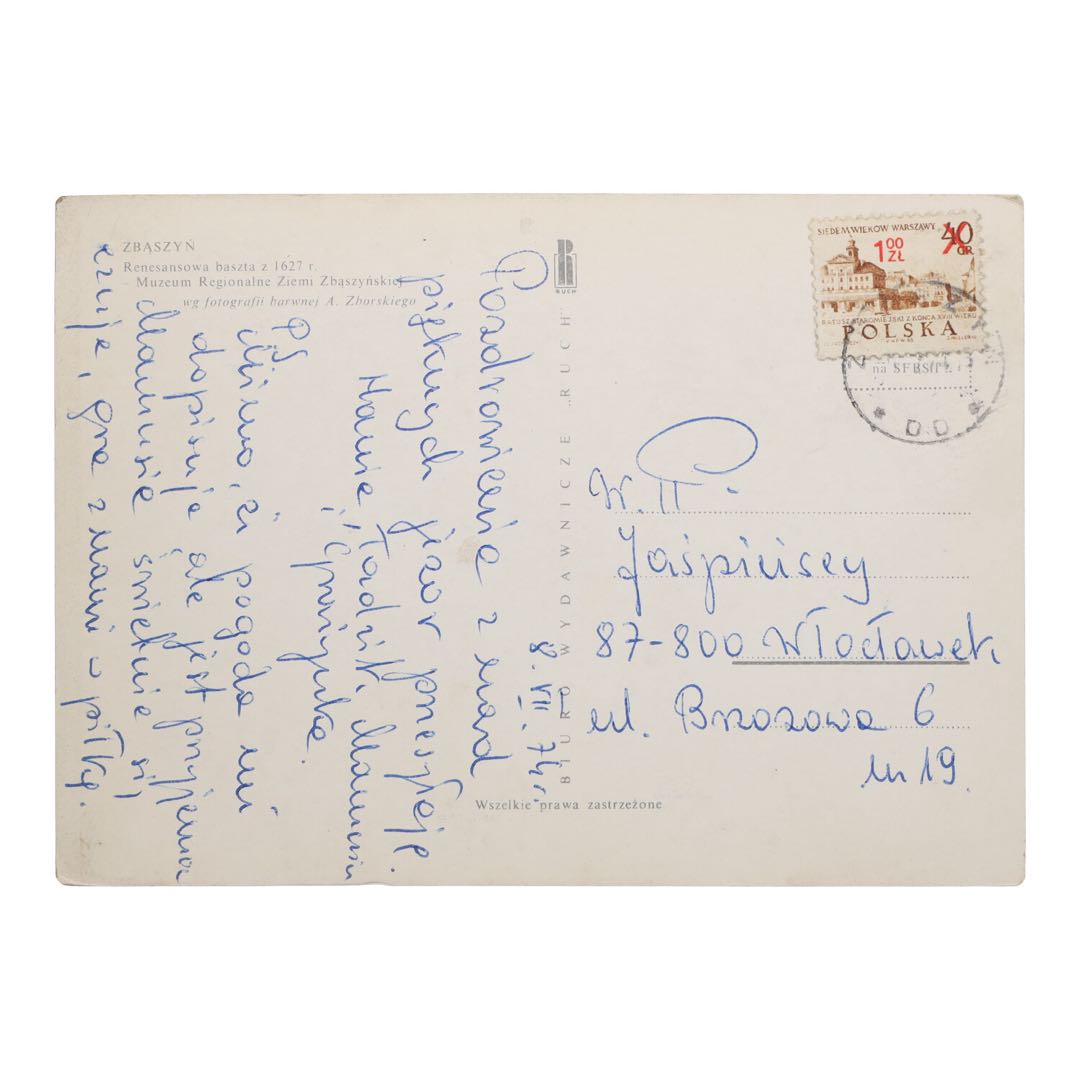 ZBĄSZYŃ
Renesansowa baszta z 1627 r.
– Muzeum Regionalne Ziemi Zbąszyńskiej
wg fotografii barwnej A. Zborskiego
8.VII.74r.
Pozdrowienie z nad
pięknych jezior przesyłają.
Hania, Tadzik, Mamusia
i
PS
Mimo, że pogoda mi
dopisuje ale jest przyjemnie
Mamusia świetnie się
czuje, gra z nami w piłkę.
RUCH
BIURO WYDAWNICZE „RUCH"
Wszelkie prawa zastrzeżone
SIEDEM WIEKÓW WARSZAWY
40 GR
1 00 ZŁ
RATUSZ STAROMIEJSKI Z KOŃCA XVIII WIEKU
POLSKA
D D
W.P.
87-800 Włocławek
ul. Brzozowa 6
m 19.